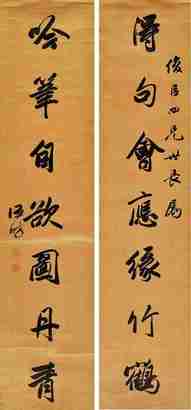 俊臣四兄世長屬
得句會應緣竹鶴
吟筆自欲圖丹青